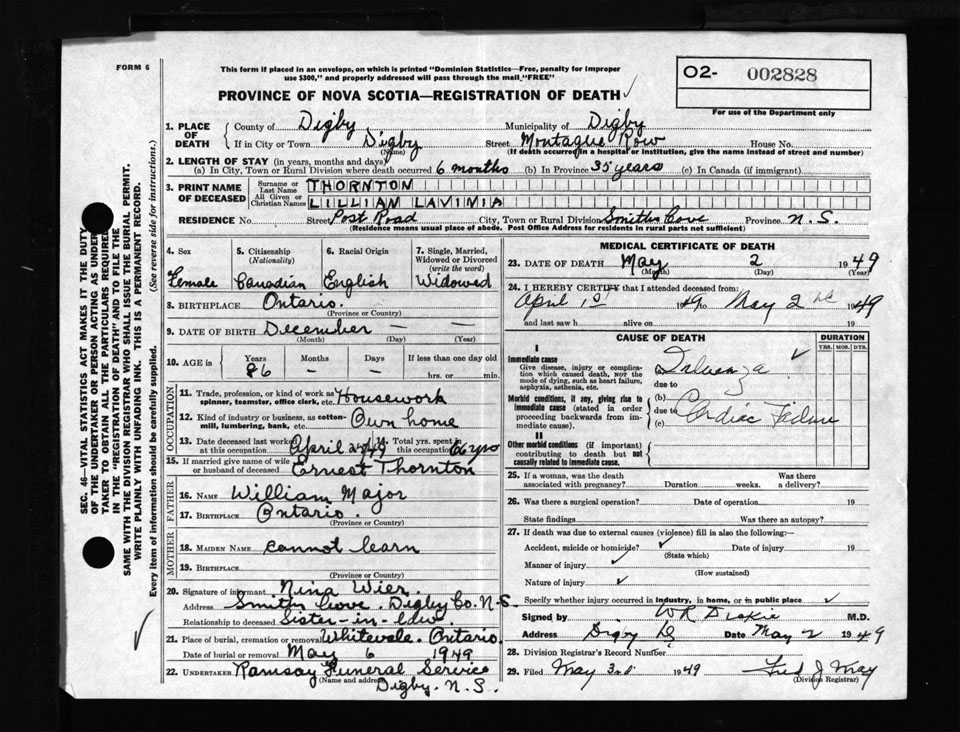 FORM 6
This form if placed in an envelope, on which is printed "Dominion Statistics—Free, penalty for improper
use $300," and properly addressed will pass through the mail "FREE"
PROVINCE OF NOVA SCOTIA—REGISTRATION OF DEATH
O2- 002828
For use of the Department only
SEC. 46—VITAL STATISTICS ACT MAKES IT THE DUTY
OF THE UNDERTAKER OR PERSON ACTING AS UNDER
TAKER TO OBTAIN ALL THE PARTICULARS REQUIRED
IN THE "REGISTRATION OF DEATH" AND TO FILE THE
SAME WITH THE DIVISION REGISTRAR WHO SHALL ISSUE THE BURIAL PERMIT.
WRITE PLAINLY WITH UNFADING INK. THIS IS A PERMANENT RECORD.
Every item of information should be carefully supplied. (See reverse side for instructions.)
1. PLACE OF DEATH
County of Digby Municipality of Digby
If in City or Town Digby Street Montague Row House No.
(Name) (If death occurred in a hospital or institution, give the name instead of street and number)
2. LENGTH OF STAY (in years, months and days)
(a) In City, Town or Rural Division where death occurred 6 months (b) In Province 35 years (c) In Canada (if immigrant)
3. PRINT NAME OF DECEASED
Surname or Last Name THORNTON
All Given or Christian Names LILLIAN LAVINIA
RESIDENCE No. Street Post Road City, Town or Rural Division Smiths Cove Province N.S.
(Residence means usual place of abode. Post Office Address for residents in rural parts not sufficient)
4. Sex 5. Citizenship (Nationality) 6. Racial Origin 7. Single, Married, Widowed or Divorced (write the word)
Female Canadian English Widowed
8. BIRTHPLACE Ontario.
(Province or Country)
9. DATE OF BIRTH December — —
(Month) (Day) (Year)
10. AGE in Years Months Days If less than one day old
86 — — hrs. or min.
OCCUPATION
11. Trade, profession, or kind of work as spinner, teamster, office clerk, etc. Housework
12. Kind of industry or business, as cotton-mill, lumbering, bank, etc. Own home
13. Date deceased last worked at this occupation April 24/49 14. Total yrs. spent in this occupation 66 yrs
15. If married give name of wife or husband of deceased Ernest Thornton
FATHER
16. NAME William Major
17. BIRTHPLACE Ontario.
(Province or Country)
MOTHER
18. MAIDEN NAME cannot learn
19. BIRTHPLACE
(Province or Country)
20. Signature of informant Nina Wier.
Address Smiths Cove. Digby Co. N.S.
Relationship to deceased Sister-in-law.
21. Place of burial, cremation or removal Whitevale. Ontario.
Date of burial or removal May 6 1949
22. UNDERTAKER Ramsay Funeral Service
(Name and address) Digby. N.S.
MEDICAL CERTIFICATE OF DEATH
23. DATE OF DEATH May 2 1949
(Month) (Day) (Year)
24. I HEREBY CERTIFY that I attended deceased from:
April 1st 1949 to May 2nd 1949
and last saw h alive on 19
CAUSE OF DEATH DURATION
YRS. MOS. DYS.
I
Immediate cause
Give disease, injury or complication which caused death, NOT the mode of dying, such as heart failure, asphyxia, asthenia, etc.
Influenza
due to
Morbid conditions, if any, giving rise to immediate cause (stated in order proceeding backwards from immediate cause).
(b)
due to Cardiac Failure
(c)
II
Other morbid conditions (if important) contributing to death but not causally related to immediate cause.
25. If a woman, was the death associated with pregnancy? Duration weeks. Was there a delivery?
26. Was there a surgical operation? Date of operation 19
State findings Was there an autopsy?
27. If death was due to external causes (violence) fill in also the following:—
Accident, suicide or homicide? Date of injury 19
(State which)
Manner of injury
(How sustained)
Nature of injury
Specify whether injury occurred in industry, in home, or in public place
Signed by WR Dickie M.D.
Address Digby Date May 2 1949
28. Division Registrar's Record Number
29. Filed May 3rd 1949 Fred J May
(Division Registrar)